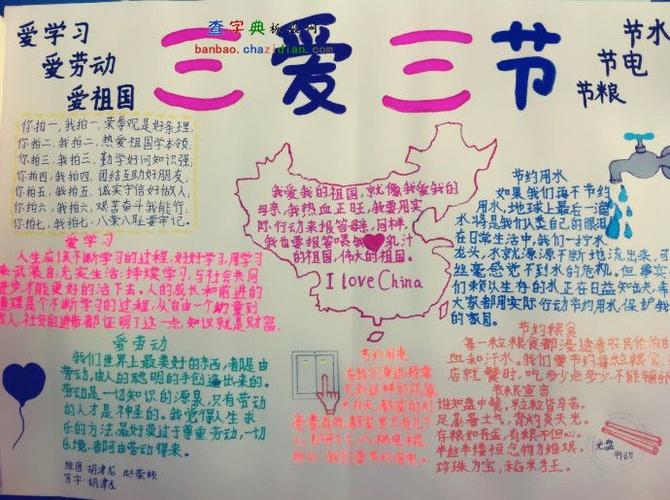 爱学习
爱劳动
爱祖国
查字典
banbao.chazidian.com
三爱三节
节水
节电
节粮
你拍一,我拍一,荣辱观是好条理,
你拍二,我拍二,热爱祖国学本领,
你拍三,我拍三,勤学好问知识强,
你拍四,我拍四,团结互助好朋友,
你拍五,我拍五,诚实守信好做人,
你拍六,我拍六,艰苦奋斗我能行,
你拍七,我拍七,八荣八耻要牢记。
我爱我的祖国,就像我爱我的
母亲,我热血正旺,我要用实
际行动来报答母亲,同样,
我也要报答喂我乳汁
的祖国,伟大的祖国。
I love China
节约用水
如果我们再不节约
用水,地球上最后一滴
水将是我们人类自己的眼泪
在日常生活中,我们一拧水
龙头,水就源源不断地流出来,可
丝毫感觉不到水的危机。但事实
们赖以生存的水正在日益
大家都用实际行动节约用水,保护我
的家园。
爱学习
人生应该不断学习的过程,好好学习,用学习
来武装自己,充实生活;持续学习,与社会共同
进步,才能更好的活下去。人的成长和前进的
道理是个不断学习的过程,从自由一个幼童到
成人,社会的进步都证明了这一点,知识就是财富。
爱劳动
我们世界上最美好的东西,都是由
劳动,由人的聪明的手创造出来的。
劳动是一切知识的源泉,只有劳动
的人才是神圣的。我觉得人生求
乐的方法,最好莫过于尊重劳动,一切
乐境,都可由劳动得来。
绘图 胡津龙
写字 胡津龙
节约用电
在我们身边,经常
我们要节约用电。
节约粮食
每一粒粮食都浸透着农民伯伯的
血和汗水。我们要节约每一粒粮食
店就餐时,吃多少点多少,不能铺张
节粮宣言
谁知盘中餐,粒粒皆辛苦。
足蒸暑土气,背灼炎天光。
有粮如有金,有粮不担心。
半丝半缕恒念物力维艰。
珍珠为宝,稻米为王。
光盘
行动